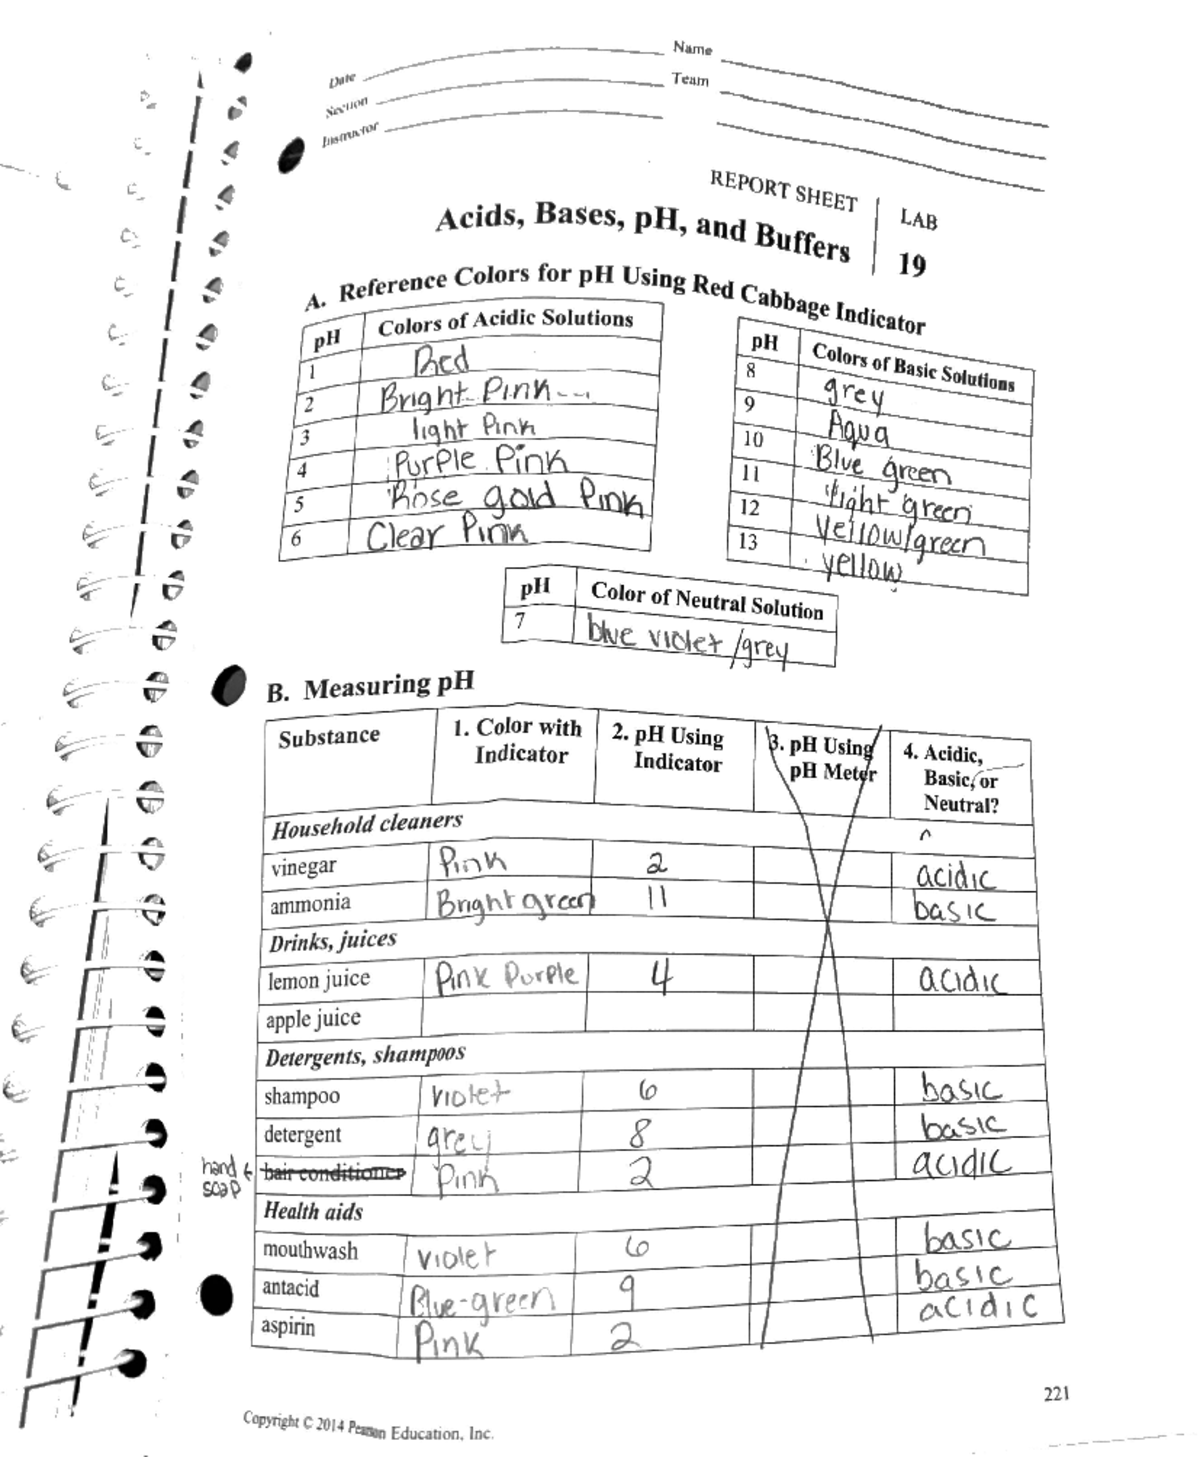 Date
Section
Instructor
Name
Team
REPORT SHEET
LAB
19
Acids, Bases, pH, and Buffers
A. Reference Colors for pH Using Red Cabbage Indicator
pH Colors of Acidic Solutions
1 Red
2 Bright Pink
3 light Pink
4 Purple Pink
5 Rose gold Pink
6 Clear Pink
pH Colors of Basic Solutions
8 grey
9 Aqua
10 Blue green
11 light green
12 yellow/green
13 yellow
pH Color of Neutral Solution
7 blue violet/grey
B. Measuring pH
Substance 1. Color with Indicator 2. pH Using Indicator 3. pH Using pH Meter 4. Acidic, Basic, or Neutral?
Household cleaners
vinegar Pink 2 acidic
ammonia Bright green 11 basic
Drinks, juices
lemon juice Pink Purple 4 acidic
apple juice
Detergents, shampoos
shampoo violet 6 basic
detergent grey 8 basic
hand soap hair conditioner Pink 2 acidic
Health aids
mouthwash violet 6 basic
antacid Blue-green 9 basic
aspirin Pink 2 acidic
221
Copyright © 2014 Pearson Education, Inc.